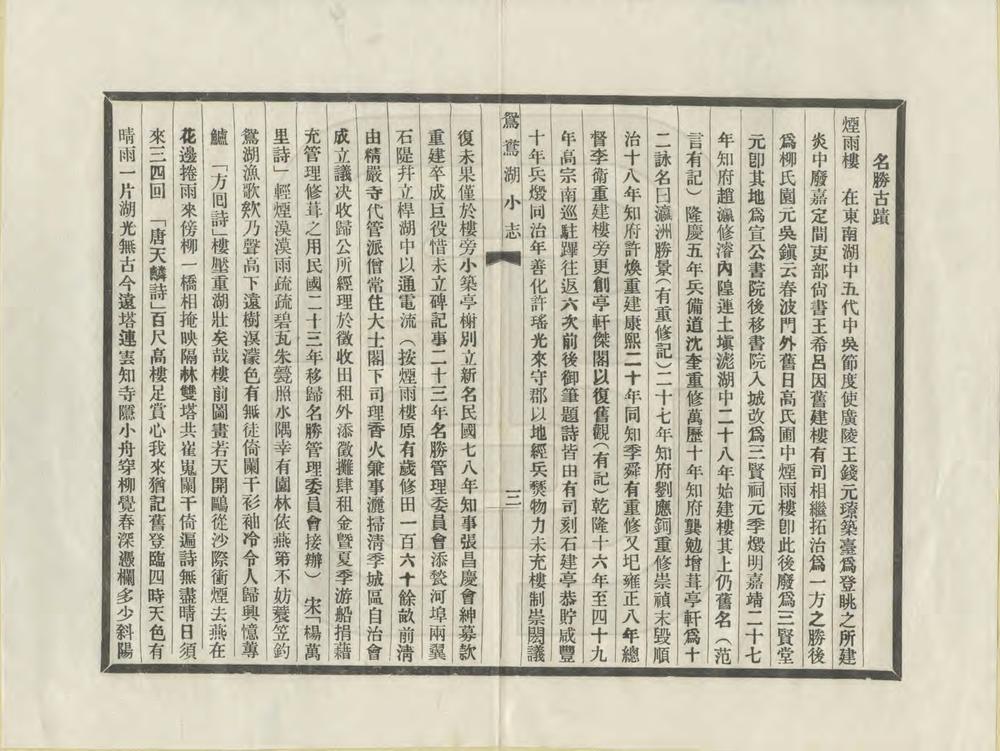 名勝古蹟
煙雨樓　在東南湖中五代中吳節度使廣陵王錢元璙築臺爲登眺之所建
炎中廢嘉定間吏部尙書王希呂因舊建樓有司相繼拓治爲一方之勝後
爲柳氏園元吳鎮云春波門外舊日高氏圃中煙雨樓卽此後廢爲三賢堂
元卽其地爲宣公書院後移書院入城改爲三賢祠元季燬明嘉靖二十七
年知府趙瀛修濬內隍運土塡滮湖中二十八年始建樓其上仍舊名（范
言有記）隆慶五年兵備道沈奎重修萬歷十年知府龔勉增葺亭軒爲十
二詠名曰瀛洲勝景（有重修記）二十七年知府劉應鈳重修崇禎末毀順
治十八年知府許煥重建康熙二十年同知季舜有重修又圮雍正八年總
督李衛重建樓旁更創亭軒傑閣以復舊觀（有記）乾隆十六年至四十九
年高宗南巡駐蹕往返六次前後御筆題詩皆由有司刻石建亭恭貯咸豐
十年兵燬同治年善化許瑤光來守郡以地經兵燹物力未充樓制崇閎議
鴛鴦湖小志
三
復未果僅於樓旁小築亭榭別立新名民國七八年知事張昌慶會紳募款
重建卒成巨役惜未立碑記事二十三年名勝管理委員會添甃河埠兩翼
石隄幷立桿湖中以通電流（按煙雨樓原有歲修田一百六十餘畝前淸
由精嚴寺代管派僧常住大士閣下司理香火兼事灑掃淸季城區自治會
成立議决收歸公所經理於徵收田租外添徵攤肆租金曁夏季游船捐藉
充管理修葺之用民國二十三年移歸名勝管理委員會接辦）　宋「楊萬
里詩」輕煙漠漠雨疏疏碧瓦朱甍照水隅幸有園林依燕第不妨蓑笠釣
鴛湖漁歌欸乃聲高下遠樹溟濛色有無徒倚闌干衫袖冷令人歸興憶蓴
鱸　「方囘詩」樓壓重湖壯矣哉樓前圖畫若天開鷗從沙際衝煙去燕在
花邊捲雨來傍柳一橋相掩映隔林雙塔共崔嵬闌干倚遍詩無盡晴日須
來三四回　「唐天麟詩」百尺高樓足賞心我來猶記舊登臨四時天色有
晴雨一片湖光無古今遠塔連雲知寺隱小舟穿柳覺春深憑欄多少斜陽